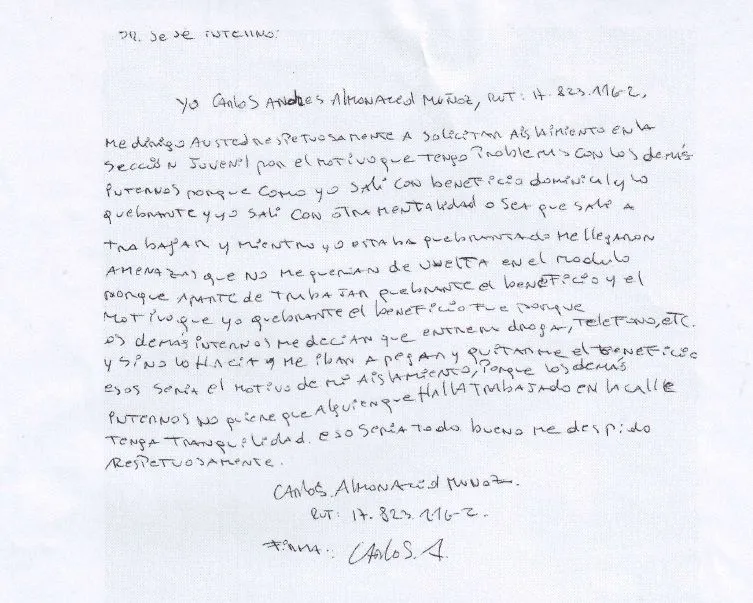 SR. JEJE INTERNO:
YO CARLOS ANDRES ALMONACED MUÑOZ, RUT: 17.823.116-2,
ME dirigo AUSTED RESPETUOSAMENTE A Solicitar AISLAIMIENTO EN LA
SECCIÓN JUVENIL por el MOTIVO que TENGO Problemas CON LOS demás
INTERNOS porque como yo SALI CON beneficio dominical y lo
quebrante y yo SALI CON OTRA MENTALIdad O SEA que SALI A
TRABAJAR y MIENTRA yo ESTABA quebrantado ME llegaron
AMENAZAS que NO ME querian de VUELTA EN el Modulo
porque APARTE de TRABAJAR quebrante el beneficio y el
MOTIVO que yo quebrante el beneficio FUE porque
los demas INTERNOS ME decian que ENTRERA droga, TELEFONO, ETC.
y SINO LO HACIA y ME iban A pegar y quitarme el beneficio
esos SERIA el MOTIVO de MI AISLAMIENTO, Porque LOS demás
INTERNOS NO quiene que Alguien que HALLA TRABAJADO EN LA CALLE
TENGA TRANquilidad. ESO SERIA Todo bueno ME despido
RESPETUOSAMENTE.
CARLOS. ALMONACED MUNOZ.
RUT: 17.823.116-2.
FIRMA: CARLOS. A.